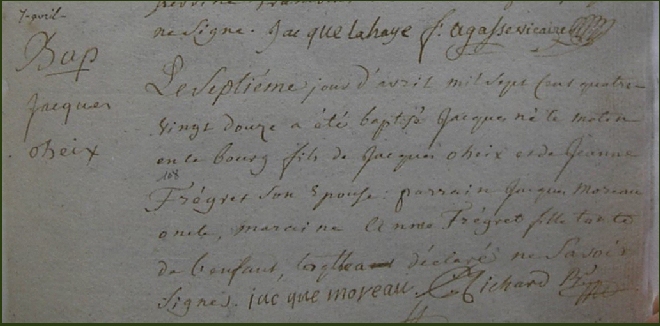 7 avril
Bap
Jacques
oheix
ne Signe. Jacque lahaye f. agasse vicaire
Le Septiéme jour d'avril mil Sept Cent quatre-
vingt douze a été baptisé Jacques né le matin
en ce bourg fils de Jacques oheix et de Jeanne
Frégret Son Epouse. parrain Jacques Moreau
oncle, maraine Anne Frégret fille tante
de l'enfant, déclaré ne Savoir
Signer. jacque moreau Richard